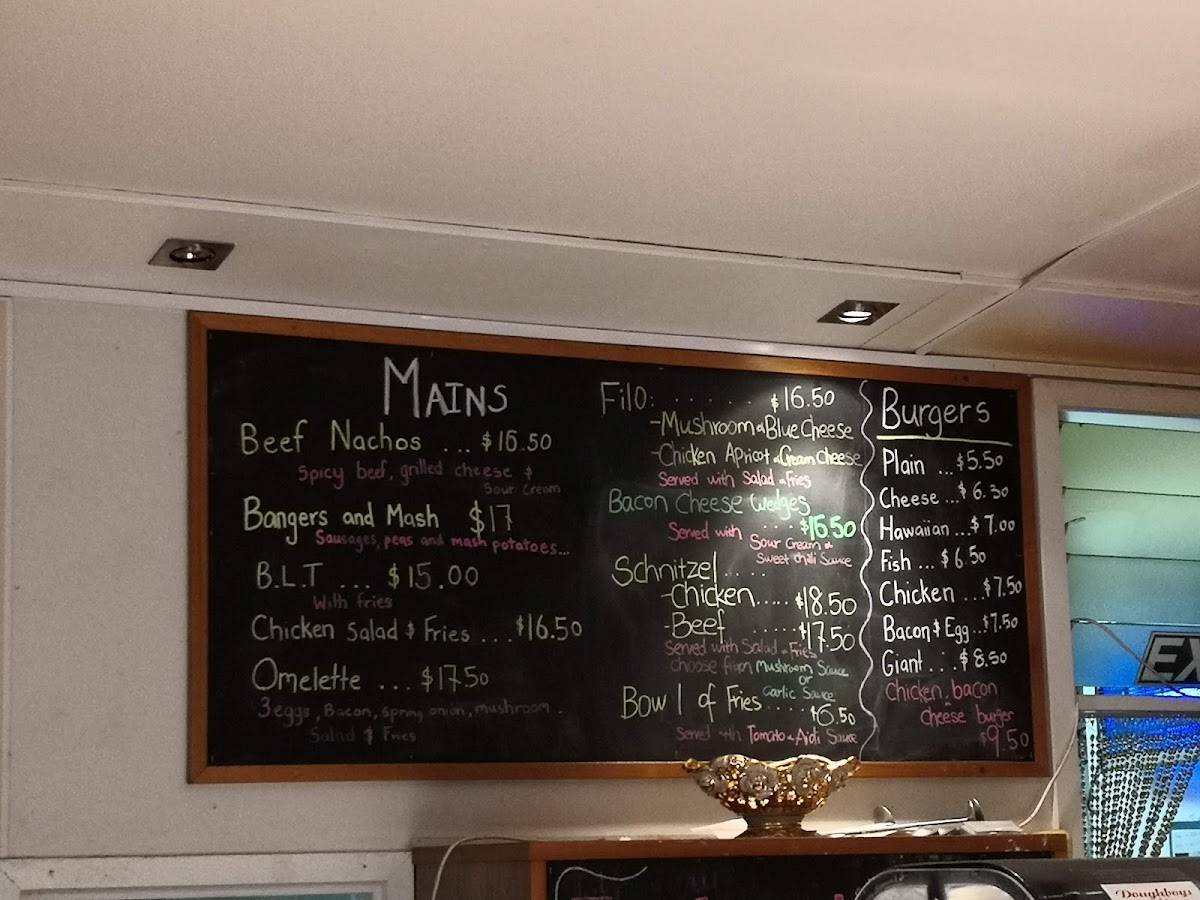 MAINS
Beef Nachos ... $16.50
Spicy beef, grilled cheese &
Sour Cream
Bangers and Mash $17
Sausages, peas and mash potatoes...
B.L.T ... $15.00
With fries
Chicken Salad & Fries ... $16.50
Omelette ... $17.50
3 eggs, Bacon, spring onion, mushroom.
Salad & Fries
Filo: . . . . . . . $16.50
-Mushroom & Blue Cheese
-Chicken Apricot & Cream Cheese
Served with Salad & Fries
Bacon Cheese Wedges
Served with .... $15.50
Sour Cream &
Sweet Chilli Sauce
Schnitzel ....
-Chicken..... $18.50
-Beef ..... $17.50
Served with Salad & Fries
choose from Mushroom Sauce
or
Garlic Sauce
Bowl of Fries .... $6.50
Served with Tomato & Aioli Sauce
Burgers
Plain ... $5.50
Cheese ... $6.30
Hawaiian ... $7.00
Fish ... $6.50
Chicken ... $7.50
Bacon & Egg ... $7.50
Giant ... $8.50
Chicken, bacon
cheese burger
$9.50
EX
Doughboys